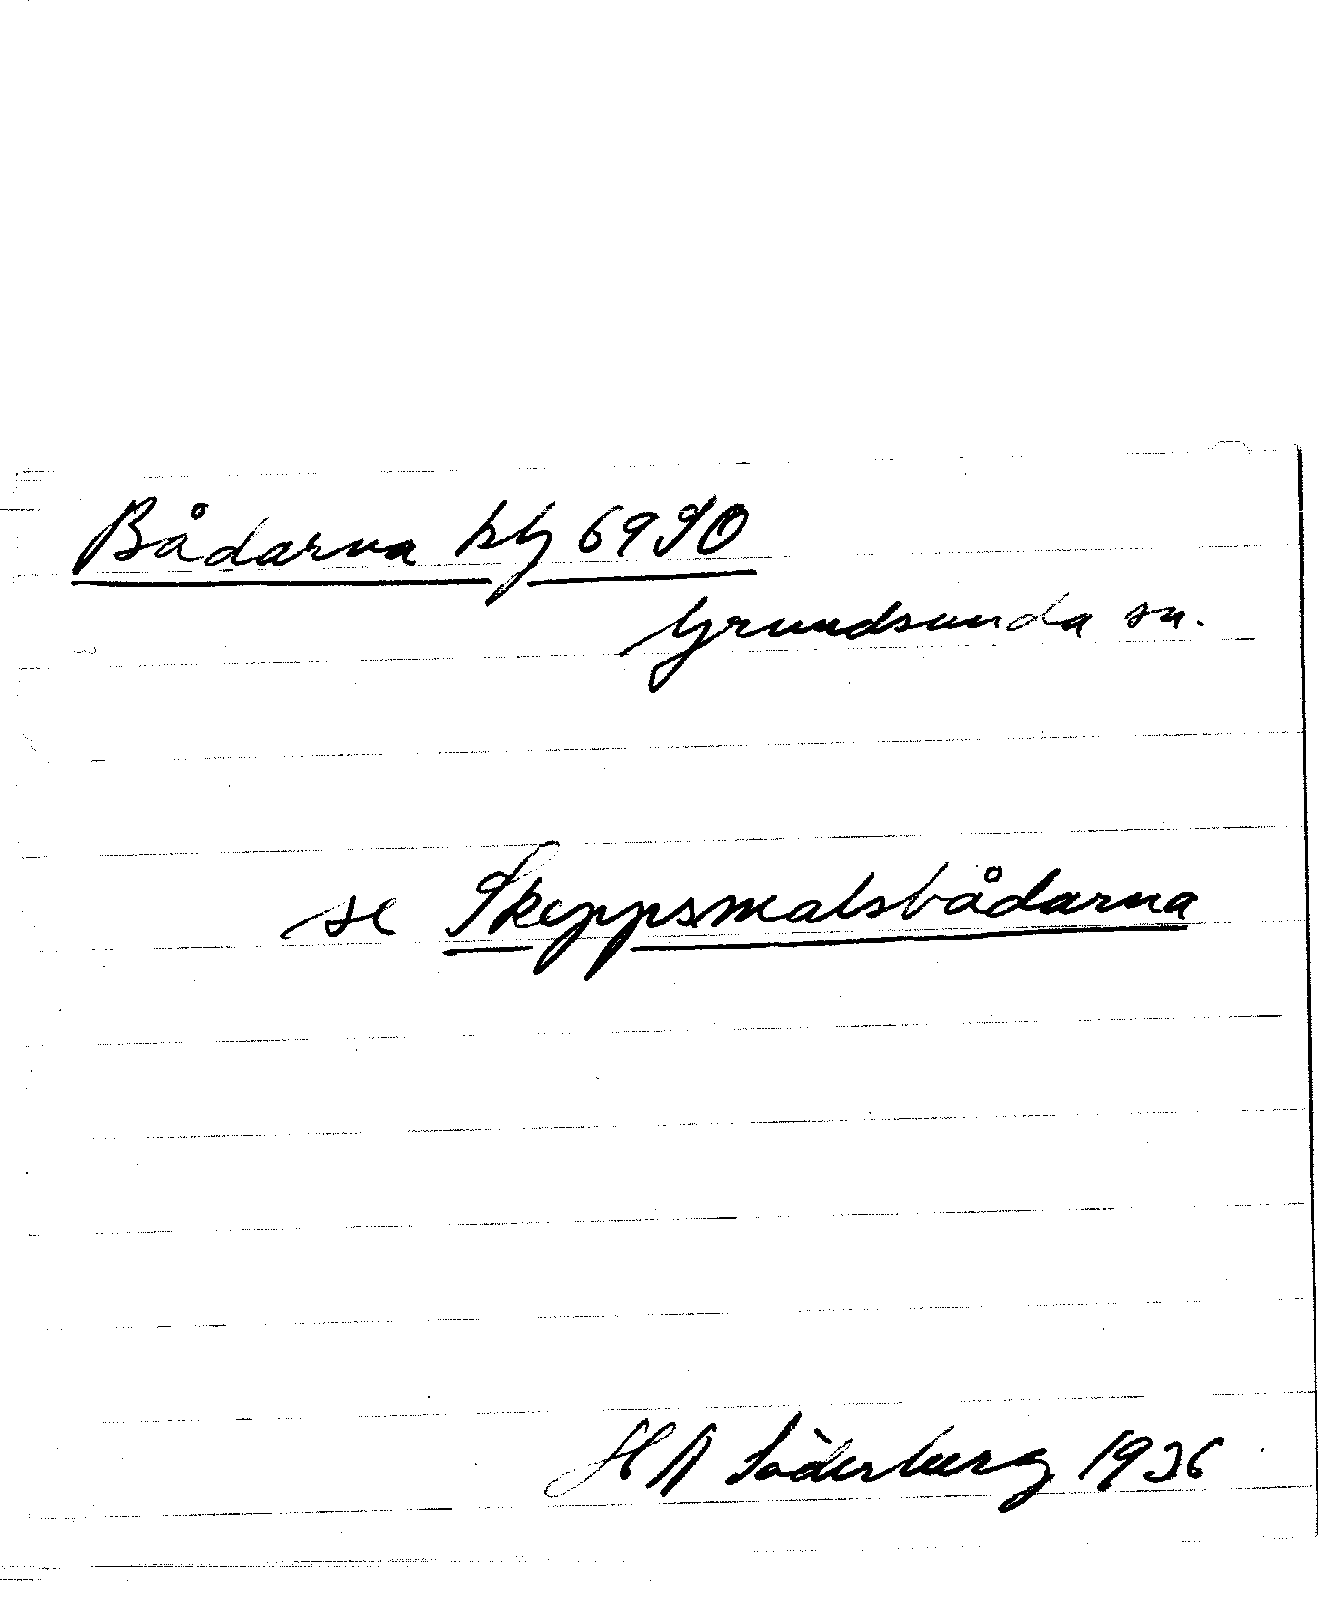 Bådarna kbj 6990
Grundsunda sn.
se Skeppsmalsbådarna
H A Söderberg 1936